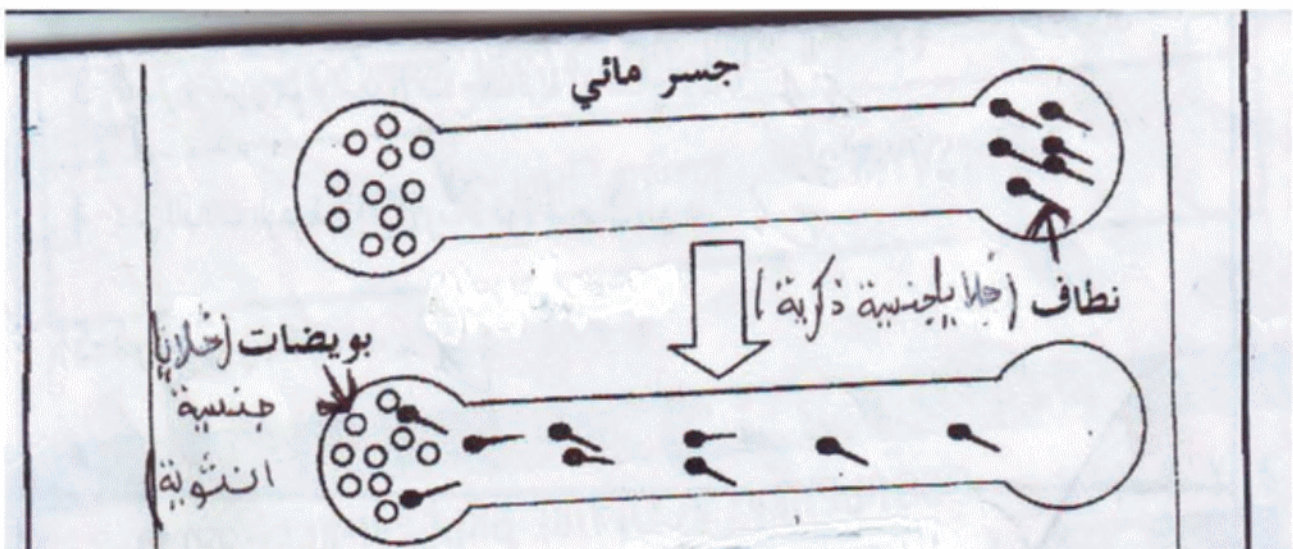 جسر مائي
نطاف (خلايا جنسية ذكرية)
بويضات (خلايا
جنسية
انثوية)